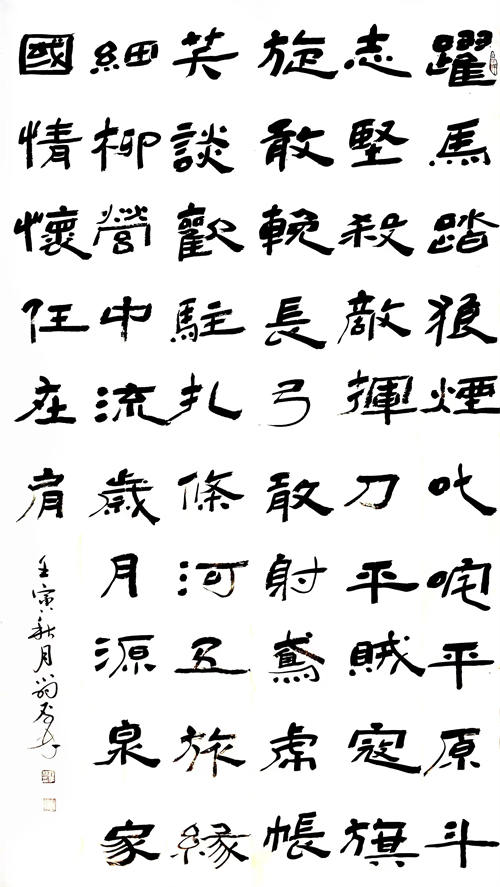 躍馬踏狼煙叱咤平原斗
志堅殺敵揮刀平賊寇旗
旋敢輓長弓敢射鳶虎帳
笑談歡駐扎條河五旅緣
細柳營中流歲月源泉家
國情懷任在肩
壬寅秋月翁